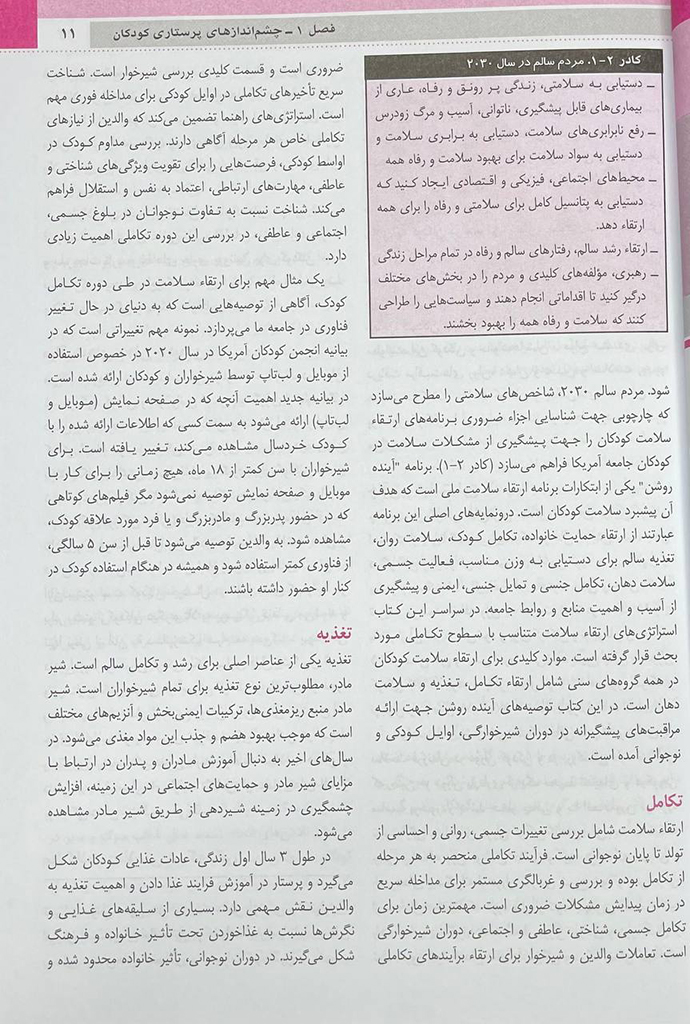 فصل ۱ ـ چشم‌اندازهای پرستاری کودکان
۱۱
کادر ۲-۱. مردم سالم در سال ۲۰۳۰
ـ دستیابی به سلامتی، زندگی پر رونق و رفاه، عاری از
بیماری‌های قابل پیشگیری، ناتوانی، آسیب و مرگ زودرس
ـ رفع نابرابری‌های سلامت، دستیابی به برابری سلامت و
دستیابی به سواد سلامت برای بهبود سلامت و رفاه همه
ـ محیط‌های اجتماعی، فیزیکی و اقتصادی ایجاد کنید که
دستیابی به پتانسیل کامل برای سلامتی و رفاه را برای همه
ارتقاء دهد.
ـ ارتقاء رشد سالم، رفتارهای سالم و رفاه در تمام مراحل زندگی
ـ رهبری، مؤلفه‌های کلیدی و مردم را در بخش‌های مختلف
درگیر کنید تا اقداماتی انجام دهند و سیاست‌هایی را طراحی
کنند که سلامت و رفاه همه را بهبود بخشند.
شود. مردم سالم ۲۰۳۰، شاخص‌های سلامتی را مطرح می‌سازد
که چارچوبی جهت شناسایی اجزاء ضروری برنامه‌های ارتقاء
سلامت کودکان را جهت پیشگیری از مشکلات سلامت در
کودکان جامعه آمریکا فراهم می‌سازد (کادر ۲-۱). برنامه "آینده
روشن" یکی از ابتکارات برنامه ارتقاء سلامت ملی است که هدف
آن پیشبرد سلامت کودکان است. درونمایه‌های اصلی این برنامه
عبارتند از ارتقاء حمایت خانواده، تکامل کودک، سلامت روان،
تغذیه سالم برای دستیابی به وزن مناسب، فعالیت جسمی،
سلامت دهان، تکامل جنسی و تمایل جنسی، ایمنی و پیشگیری
از آسیب و اهمیت منابع و روابط جامعه. در سراسر این کتاب
استراتژی‌های ارتقاء سلامت متناسب با سطوح تکاملی مورد
بحث قرار گرفته است. موارد کلیدی برای ارتقاء سلامت کودکان
در همه گروه‌های سنی شامل ارتقاء تکامل، تغذیه و سلامت
دهان است. در این کتاب توصیه‌های آینده روشن جهت ارائه
مراقبت‌های پیشگیرانه در دوران شیرخوارگی، اوایل کودکی و
نوجوانی آمده است.
تکامل
ارتقاء سلامت شامل بررسی تغییرات جسمی، روانی و احساسی از
تولد تا پایان نوجوانی است. فرآیند تکاملی منحصر به هر مرحله
از تکامل بوده و بررسی و غربالگری مستمر برای مداخله سریع
در زمان پیدایش مشکلات ضروری است. مهمترین زمان برای
تکامل جسمی، شناختی، عاطفی و اجتماعی، دوران شیرخوارگی
است. تعاملات والدین و شیرخوار برای ارتقاء برآیندهای تکاملی
ضروری است و قسمت کلیدی بررسی شیرخوار است. شناخت
سریع تأخیرهای تکاملی در اوایل کودکی برای مداخله فوری مهم
است. استراتژی‌های راهنما تضمین می‌کند که والدین از نیازهای
تکاملی خاص هر مرحله آگاهی دارند. بررسی مداوم کودک در
اواسط کودکی، فرصت‌هایی را برای تقویت ویژگی‌های شناختی و
عاطفی، مهارت‌های ارتباطی، اعتماد به نفس و استقلال فراهم
می‌کند. شناخت نسبت به تفاوت نوجوانان در بلوغ جسمی،
اجتماعی و عاطفی، در بررسی این دوره تکاملی اهمیت زیادی
دارد.
یک مثال مهم برای ارتقاء سلامت در طی دوره تکامل
کودک، آگاهی از توصیه‌هایی است که به دنیای در حال تغییر
فناوری در جامعه ما می‌پردازد. نمونه مهم تغییراتی است که در
بیانیه انجمن کودکان آمریکا در سال ۲۰۲۰ در خصوص استفاده
از موبایل و لب‌تاپ توسط شیرخواران و کودکان ارائه شده است.
در بیانیه جدید اهمیت آنچه که در صفحه نمایش (موبایل و
لب‌تاپ) ارائه می‌شود به سمت کسی که اطلاعات ارائه شده را با
کودک خردسال مشاهده می‌کند، تغییر یافته است. برای
شیرخواران با سن کمتر از ۱۸ ماه، هیچ زمانی را برای کار با
موبایل و صفحه نمایش توصیه نمی‌شود مگر فیلم‌های کوتاهی
که در حضور پدربزرگ و مادربزرگ و یا فرد مورد علاقه کودک،
مشاهده شود. به والدین توصیه می‌شود تا قبل از سن ۵ سالگی،
از فناوری کمتر استفاده شود و همیشه در هنگام استفاده کودک در
کنار او حضور داشته باشند.
تغذیه
تغذیه یکی از عناصر اصلی برای رشد و تکامل سالم است. شیر
مادر، مطلوب‌ترین نوع تغذیه برای تمام شیرخواران است. شیر
مادر منبع ریزمغذی‌ها، ترکیبات ایمنی‌بخش و آنزیم‌های مختلف
است که موجب بهبود هضم و جذب این مواد مغذی می‌شود. در
سال‌های اخیر به دنبال آموزش مادران و پدران در ارتباط با
مزایای شیر مادر و حمایت‌های اجتماعی در این زمینه، افزایش
چشمگیری در زمینه شیردهی از طریق شیر مادر مشاهده
می‌شود.
در طول ۳ سال اول زندگی، عادات غذایی کودکان شکل
می‌گیرد و پرستار در آموزش فرایند غذا دادن و اهمیت تغذیه به
والدین نقش مهمی دارد. بسیاری از سلیقه‌های غذایی و
نگرش‌ها نسبت به غذاخوردن تحت تأثیر خانواده و فرهنگ
شکل می‌گیرند. در دوران نوجوانی، تأثیر خانواده محدود شده و